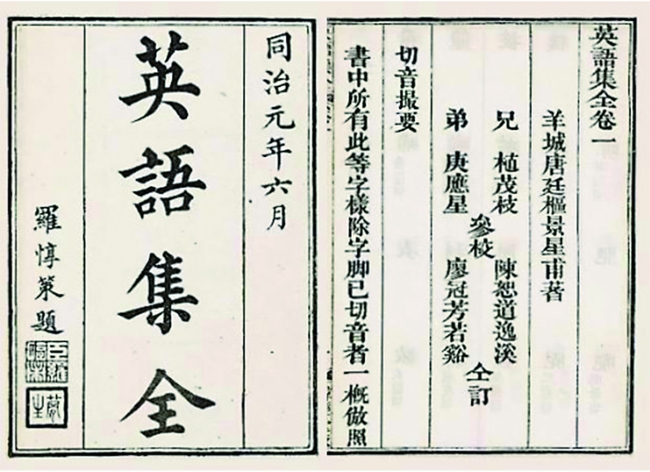 英語集全卷一
羊城唐廷樞景星甫著
兄 植茂枝 陳恕道逸溪
參校 仝訂
弟 庚應星 廖冠芳若谿
切音撮要
書中所有此等字樣除字脚已切音者一概倣照
同治元年六月
英語集全
羅惇䇿題